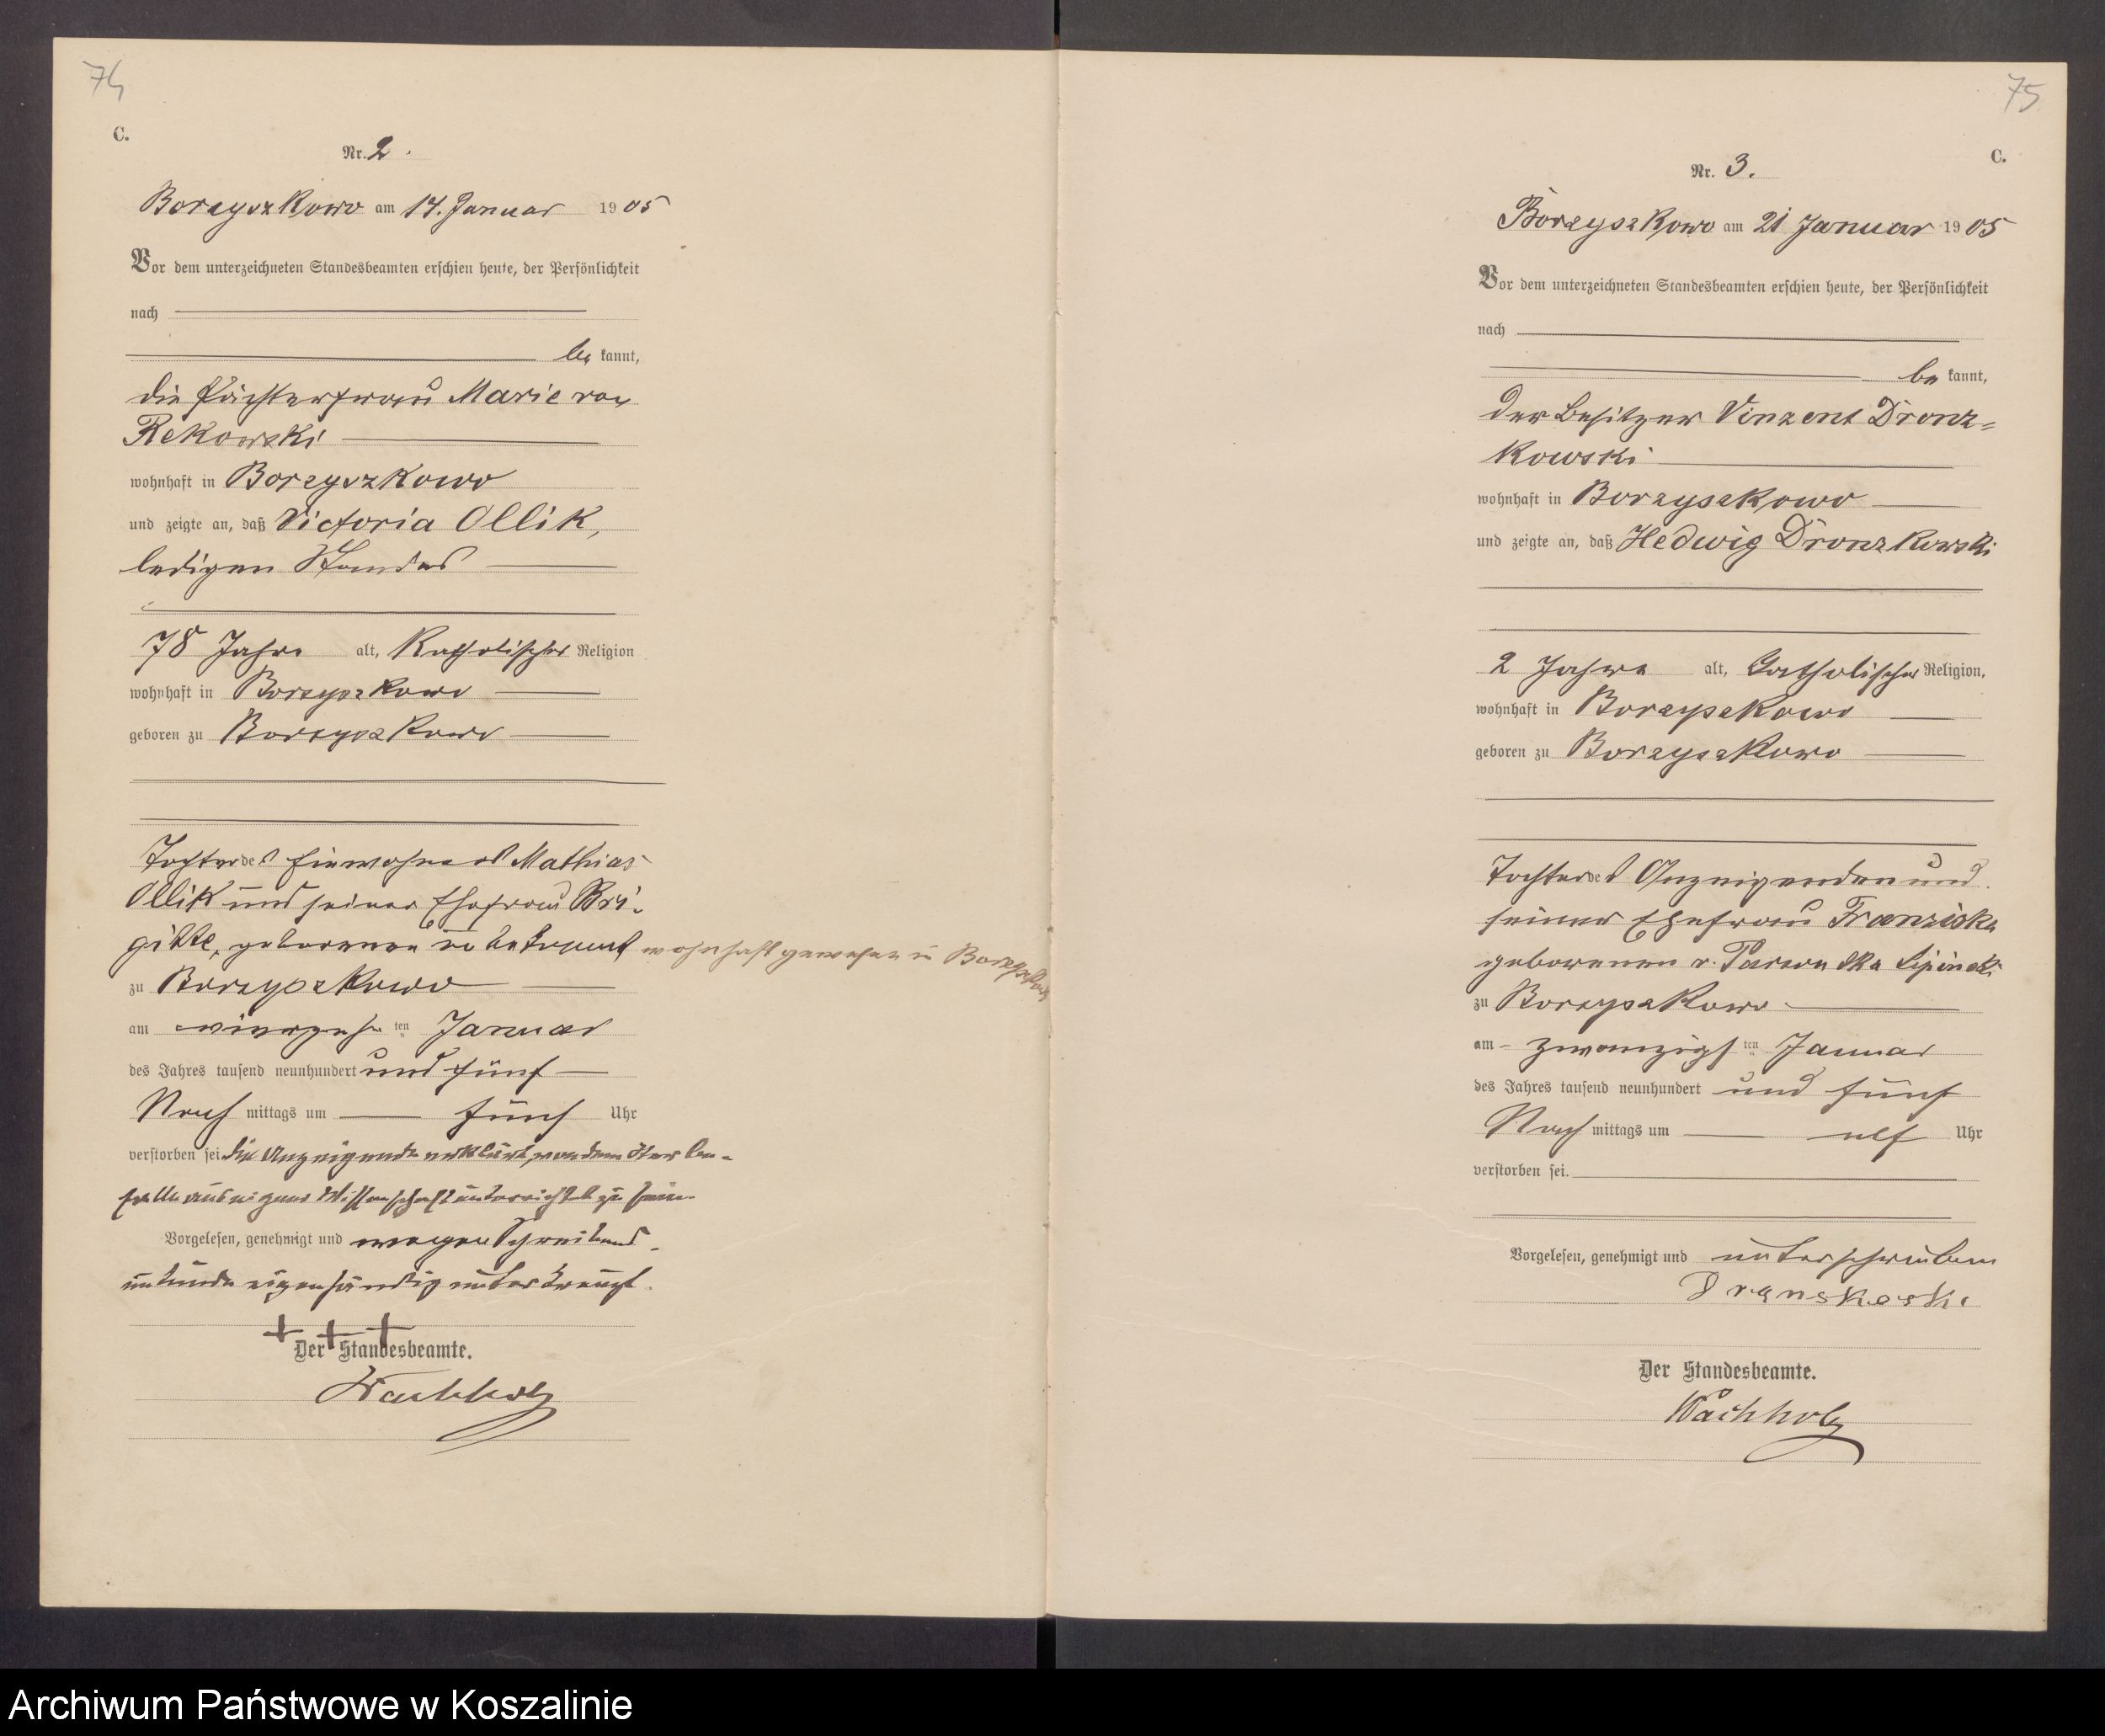 74
C.
Nr. 2.
Borzyszkowo am 14. Januar 1905
Vor dem unterzeichneten Standesbeamten erschien heute, der Persönlichkeit
nach
be kannt,
die Pächterfrau Marie von
Rekowski
wohnhaft in Borzyszkowo
und zeigte an, daß Victoria Ollik,
ledigen Standes
78 Jahre alt, Katholischer Religion
wohnhaft in Borzyszkowo
geboren zu Borzyszkowo
Tochter des Einwohners Mathias
Ollik und seiner Ehefrau Bri-
gitte, geborenen unbekannt wohnhaft gewesen in Borzyszkowo
zu Borzyszkowo
am vierzehnten Januar
des Jahres tausend neunhundert und fünf
Nachmittags um fünf Uhr
verstorben sei. Die Anzeigende erklärt, von dem Sterbe-
falle aus eigener Wissenschaft unterrichtet zu sein.
Vorgelesen, genehmigt und wegen Schreibens-
unkunde eigenhändig unterkreuzt.
+ + +
Der Standesbeamte.
Wachholz
75
C.
Nr. 3.
Borzyszkowo am 21 Januar 1905
Vor dem unterzeichneten Standesbeamten erschien heute, der Persönlichkeit
nach
be kannt,
der Besitzer Vinzent Dronz=
kowski
wohnhaft in Borzyszkowo
und zeigte an, daß Hedwig Dronzkowski
2 Jahre alt, Katholischer Religion,
wohnhaft in Borzyszkowo
geboren zu Borzyszkowo
Tochter des Anzeigenden und
seiner Ehefrau Franziska
geborenen v. Lipinski
zu Borzyszkowo
am zwanzigsten Januar
des Jahres tausend neunhundert und fünf
Nachmittags um elf Uhr
verstorben sei.
Vorgelesen, genehmigt und unterschrieben
Der Standesbeamte.
Wachholz
Archiwum Państwowe w Koszalinie